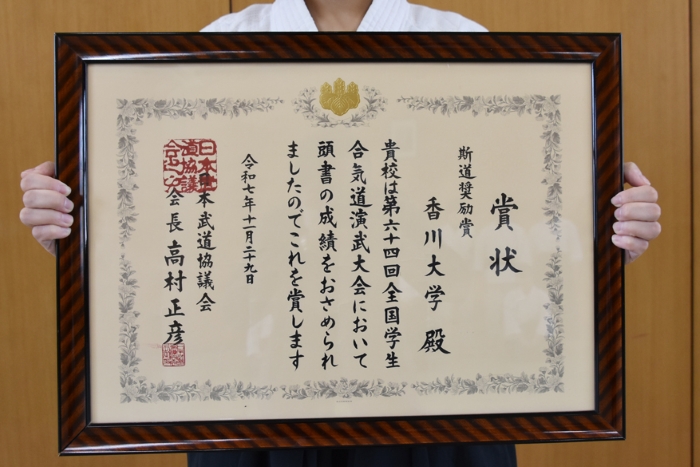 賞状
斯道奨励賞
香川大学 殿
貴校は第六十四回全国学生
合気道演武大会において
頭書の成績をおさめられ
ましたのでこれを賞します
令和七年十一月二十九日
日本武道協議会
会長 高村正彦